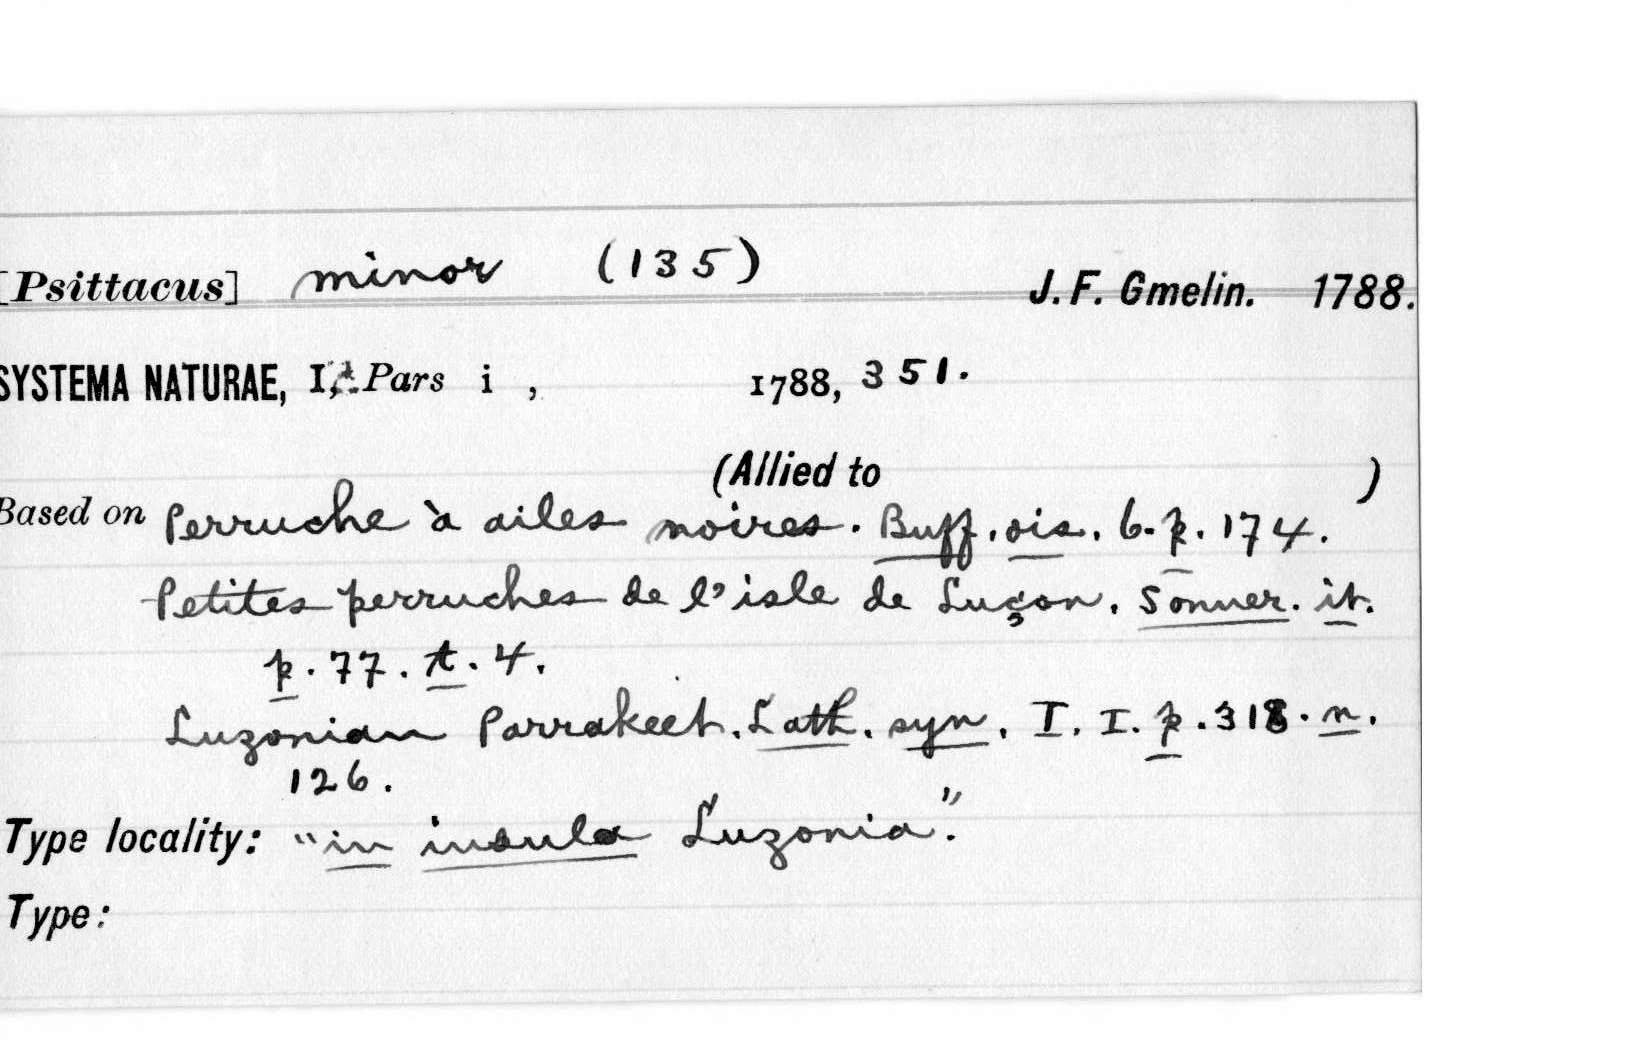 [Psittacus] minor (135) J. F. Gmelin. 1788.
SYSTEMA NATURAE, I, Pars i , 1788, 351.
(Allied to )
Based on Perruche à ailes noires. Buff. ois. 6. p. 174.
Petites perruches de l'isle de Luçon. Sonner. it.
p. 77. t. 4.
Luzonian Parrakeet. Lath. syn. I. I. p. 318. n.
126.
Type locality: "in insula Luzonia".
Type: